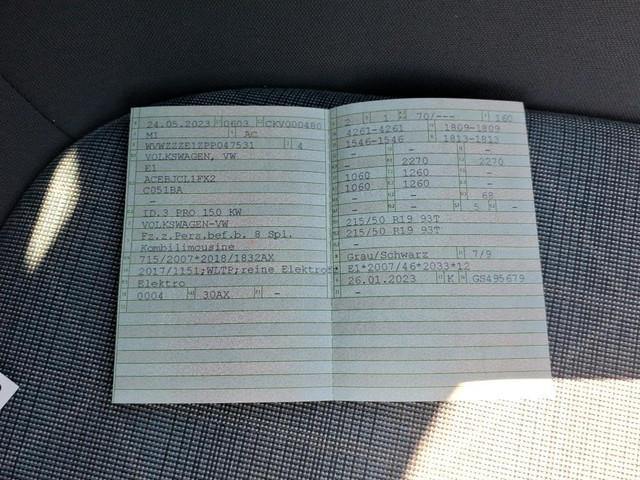 24.05.2023 0603 CKV000480
M1 AC
WVWZZZE1ZPP047531 4
VOLKSWAGEN, VW
E1
ACEBJCL1FX2
C051BA
-
ID.3 PRO 150 KW
VOLKSWAGEN-VW
Fz.z.Pers.bef.b. 8 Spl.
Kombilimousine
715/2007*2018/1832AX
2017/1151;WLTP;reine Elektrof
Elektro
0004 30AX -
2 1 70/--- 160
4261-4261 1809-1809
1546-1546 1813-1813
- -
- 2270 2270
1060 1260 -
1060 1260 -
- - 68
- - 5 -
215/50 R19 93T
215/50 R19 93T
-
Grau/Schwarz 7/9
E1*2007/46*2033*12
26.01.2023 K GS495679
-